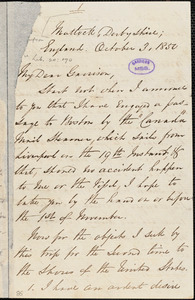 Matlock, Derbyshire,
England. October 9. 1850
My Dear Garrison,
Start not when I announce
to you that I have engaged a pas-
sage to Boston by the "Canada"
Mail Steamer, which sails from
Liverpool on the 19th Instant, &
that, should no accident happen
to me or the Vessel, I hope to
take you by the hand on or before
the 1st of November.
Now for the objects I seek by
this trip for the second time to
the shores of the United States.
1. I have an ardent desire